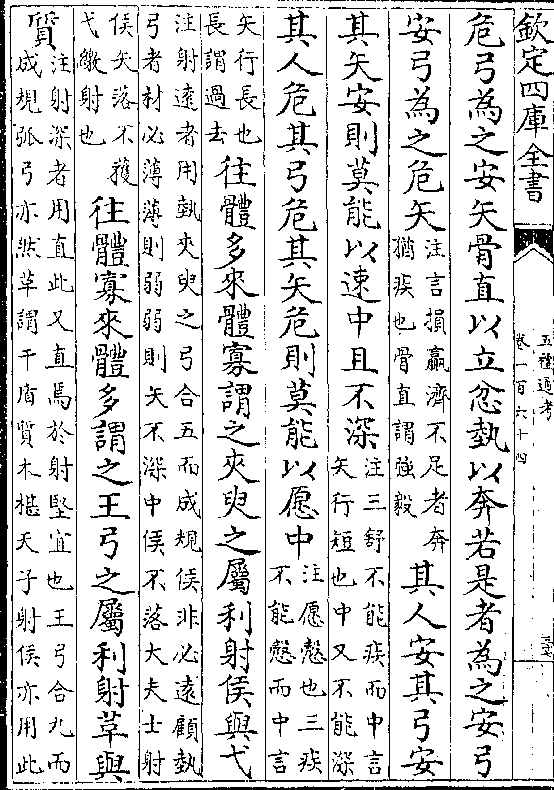 欽定四庫全書
五禮通考
卷一百六十四
危弓為之安矢骨直以立忿埶以奔若是者為之安弓
安弓為之危矢
注言損贏濟不足者奔
猶疾也骨直謂強毅
其人安其弓安
其矢安則莫能以速中且不深
注三舒不能疾而中言
矢行短也中又不能深
其人危其弓危其矢危則莫能以愿中
注愿慤也三疾
不能慤而中言
矢行長也
長謂過去
往體多來體寡謂之夾臾之屬利射侯與弋
注射遠者用埶夾臾之弓合五而成規侯非必遠顧埶
弓者材必薄薄則弱弱則矢不深中侯不落大夫士射
侯矢落不獲
弋繳射也
往體寡來體多謂之王弓之屬利射革與
質
注射深者用直此又直焉於射堅宜也王弓合九而
成規弧弓亦然革謂干盾質木椹天子射侯亦用此